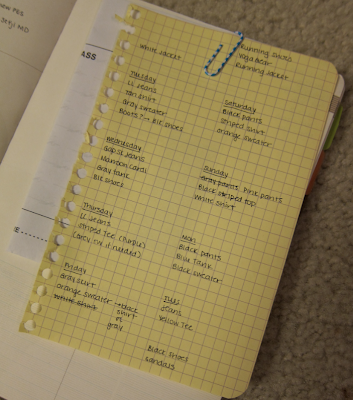 White Jacket
Tuesday
LL Jeans
Tan shirt
Gray sweater
Boots
Wednesday
Gap sl Jeans
Maroon Cardi
Gray tank
Thursday
LL Jeans
Striped Tee (Purple)
if needed)
Friday
Gray skirt
Orange sweater - black
White Shirt
shirt
or
gray
Running shoes
Yoga Gear
Running Jacket
Saturday
Black pants
Striped shirt
orange sweater
Sunday
Gray pants Pink pants
Black striped top
White shirt
Mon
Black pants
Blue Tank
Black sweater
Jeans
Yellow Tee
Black Shoes
Sandals
ASS